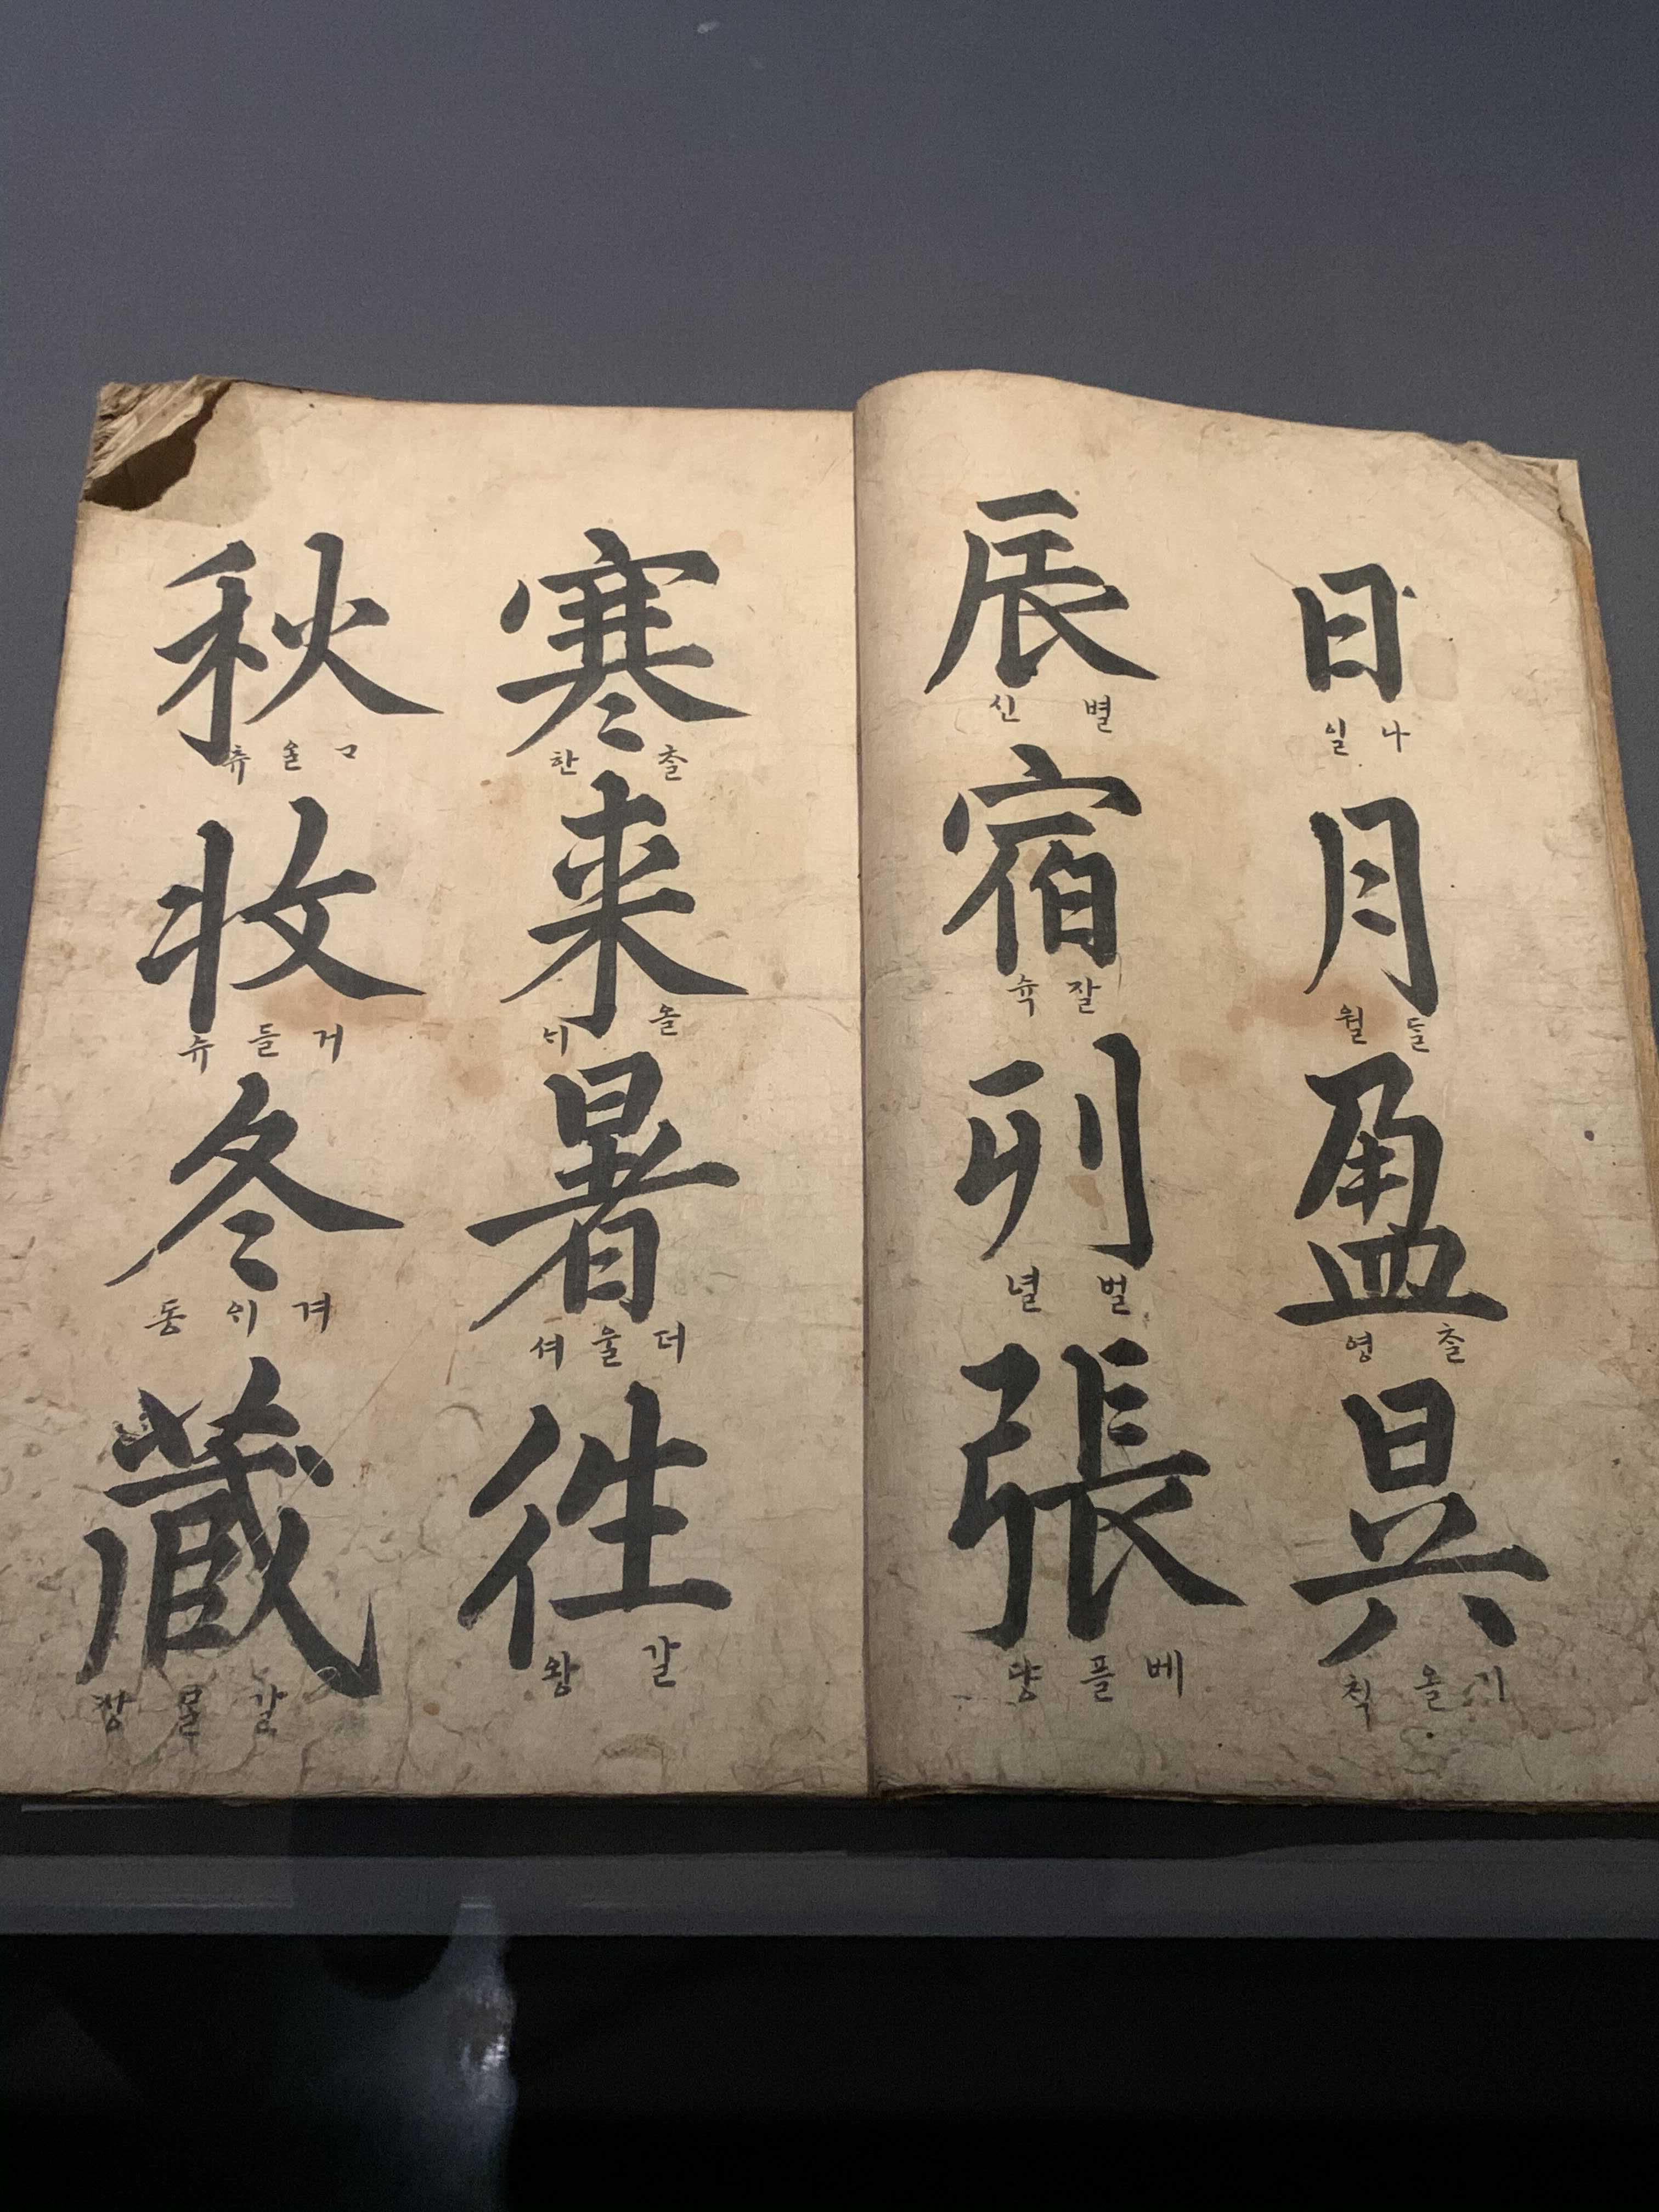 日
나 일
月
ᄃᆞᆯ 월
盈
ᄎᆞᆯ 영
昃
기 올 칙
辰
별 신
宿
잘 슉
列
벌 녈
張
베 플 댱
寒
ᄎᆞᆯ 한
来
올 ᄂᆡ
暑
더 울 셔
徃
갈 왕
秋
ᄀᆞ ᄋᆞᆯ 츄
收
거 들 슈
冬
겨 ᄋᆡ 동
蔵
갈 장